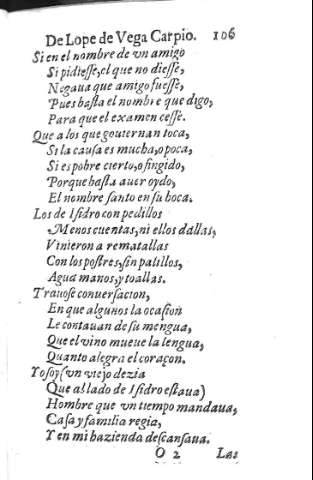 De Lope de Vega Carpio. 106
Si en el nombre de vn amigo
Si pidieſſe, el que no dieſſe,
Negaua que amigo fueſſe,
Pues baſta el nombre que digo,
Para que el examen ceſſe.
Que a los que gouiernan toca,
Si la cauſa es mucha, o poca,
Si es pobre cierto, o fingido,
Porque baſta auer oydo,
El nombre ſanto en ſu boca.
Los de Iſidro con pedillos
Menos cuentas, ni ellos dallas,
Vinieron a rematallas
Con los poſtres, ſin palillos,
Agua manos, y toallas.
Trauoſe conuerſacion,
En que algunos la ocaſion
Le contauan de ſu mengua,
Que el vino mueue la lengua,
Quanto alegra el coraçon.
Yo ſoy (vn viejo dezia
Que al lado de Iſidro eſtaua)
Hombre que vn tiempo mandaua,
Caſa y familia regia,
Y en mi hazienda deſcanſaua.
O 2 Las